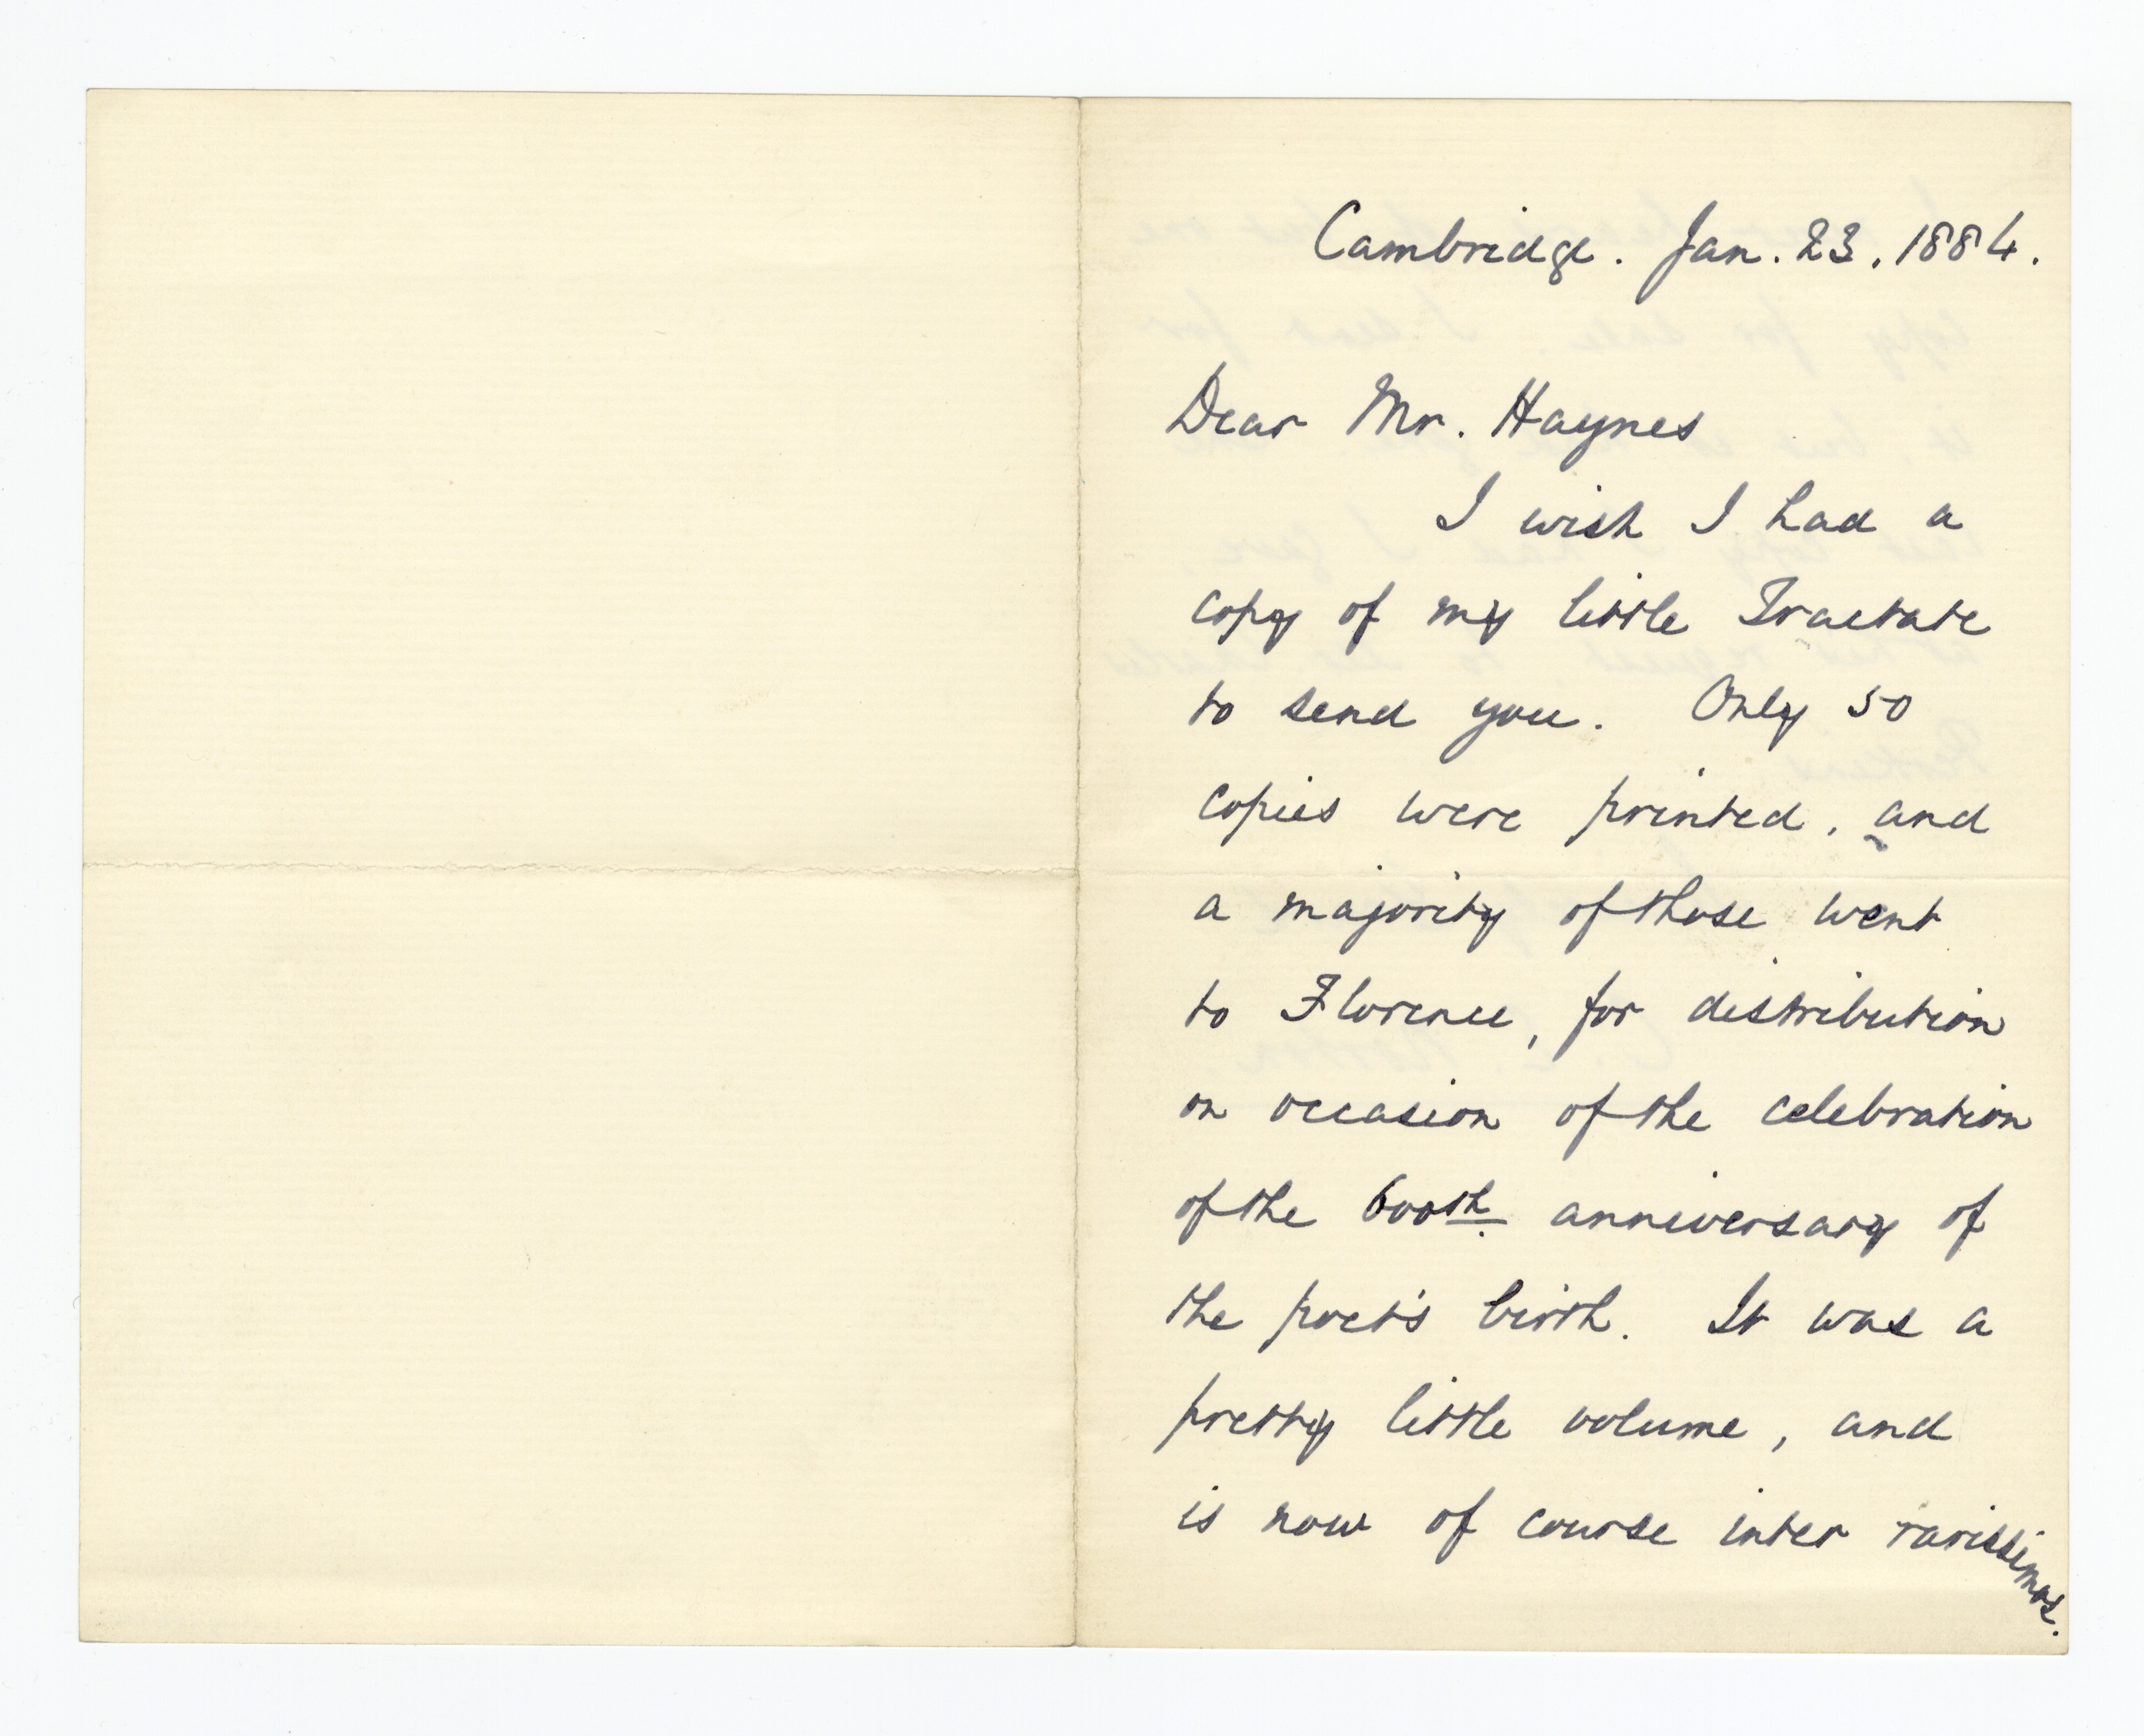 Cambridge. Jan. 23. 1884.
Dear Mr. Haynes
I wish I had a
copy of my little Tractate
to send you. Only 50
copies were printed, and
a majority of those went
to Florence, for distribution
on occasion of the celebration
of the 600th anniversary of
the poet's birth. It was a
pretty little volume, and
is now of course inter rarissimos.